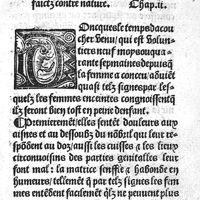 faictz contre nature. Chap.ii.
Oncques le temps dacou
cher venu, qui est volun-
tiers neuf moys ou qua-
rante sepmaines depuis q̃
la femme a conceu, adviẽt
quasi telz signes par les-
quelz les femmes enceintes congnoissent q̃
ilz seront bien tost en peine denfant.
Premieremẽt, elles sentẽt douleurs aux
aisnes et au dessoubz du nõbril qui leur res-
põdent au doz, aussi les cuisses ⁊ les lieux
circonvoisins des parties genitalles leur
font mal: la matrice senfle ⁊ habonde en
humeurs, tellemẽt q̃ par telz signes les fem
mes entẽdent facilemẽt